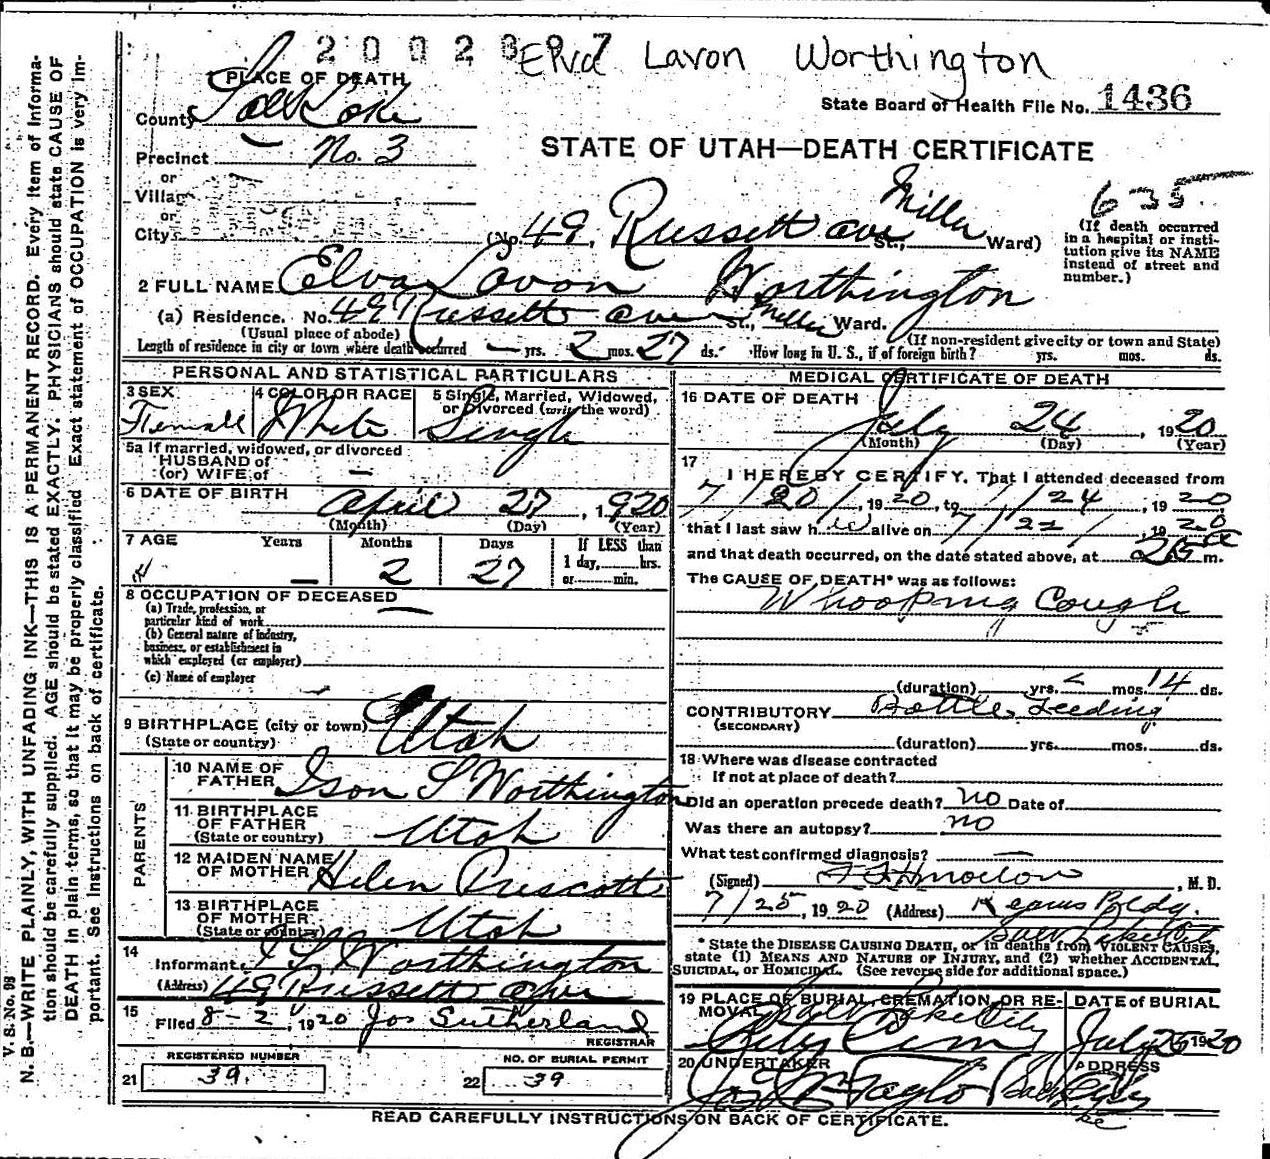 2 0 0 2 8 9 7
Elva Lavon Worthington
PLACE OF DEATH
State Board of Health File No. 1436
County Salt Lake
Precinct No. 3
STATE OF UTAH—DEATH CERTIFICATE
or
Village
or
City
(No. 49, Russett ave St., Miller Ward)
635
(If death occurred in a hospital or institution give its NAME instead of street and number.)
2 FULL NAME Elva Lavon Worthington
(a) Residence. No. 49 Russett ave St., Miller Ward.
(Usual place of abode)
(If non-resident give city or town and State)
Length of residence in city or town where death occurred — yrs. 2 mos. 27 ds. How long in U. S., if of foreign birth? yrs. mos. ds.
PERSONAL AND STATISTICAL PARTICULARS
3 SEX Female
4 COLOR OR RACE White
5 Single, Married, Widowed, or Divorced (write the word) Single
5a If married, widowed, or divorced
HUSBAND of
(or) WIFE of —
6 DATE OF BIRTH April 27, 1920
(Month) (Day) (Year)
7 AGE Years Months Days If LESS than
— 2 27 1 day, hrs.
or min.
8 OCCUPATION OF DECEASED —
(a) Trade, profession, or
particular kind of work
(b) General nature of industry,
business, or establishment in
which employed (or employer)
(c) Name of employer
9 BIRTHPLACE (city or town) Utah
(State or country)
PARENTS
10 NAME OF FATHER Ison S Worthington
11 BIRTHPLACE OF FATHER Utah
(State or country)
12 MAIDEN NAME OF MOTHER Helen Prescott
13 BIRTHPLACE OF MOTHER Utah
(State or country)
14 Informant I S Worthington
(Address) 49 Russett ave
15 Filed 8-2, 1920 Jos Sutherland
REGISTRAR
REGISTERED NUMBER
21 39
NO. OF BURIAL PERMIT
22 39
MEDICAL CERTIFICATE OF DEATH
16 DATE OF DEATH
July 24, 1920
(Month) (Day) (Year)
17 I HEREBY CERTIFY, That I attended deceased from
7/20/, 1920, to 7/24, 1920
that I last saw her alive on 7/22/ 1920
and that death occurred, on the date stated above, at m.
The CAUSE OF DEATH* was as follows:
Whooping Cough
(duration) yrs. mos. 14 ds.
CONTRIBUTORY Bottle Feeding
(SECONDARY)
(duration) yrs. mos. ds.
18 Where was disease contracted
If not at place of death?
Did an operation precede death? no Date of
Was there an autopsy? no
What test confirmed diagnosis? —
(Signed) , M. D.
7/25, 1920 (Address) Kearns Bldg.
Salt Lake City
* State the DISEASE CAUSING DEATH, or in deaths from VIOLENT CAUSES,
state (1) MEANS AND NATURE OF INJURY, and (2) whether ACCIDENTAL,
SUICIDAL, or HOMICIDAL. (See reverse side for additional space.)
19 PLACE OF BURIAL, CREMATION, OR REMOVAL Salt Lake City
City Cem
DATE of BURIAL
July 25 1920
20 UNDERTAKER
Taylor
ADDRESS
Salt Lake City
READ CAREFULLY INSTRUCTIONS ON BACK OF CERTIFICATE.
V. S. No. 98
N. B.—WRITE PLAINLY, WITH UNFADING INK—THIS IS A PERMANENT RECORD. Every item of Informa-
tion should be carefully supplied. AGE should be stated EXACTLY. PHYSICIANS should state CAUSE OF
DEATH in plain terms, so that it may be properly classified. Exact statement of OCCUPATION is very im-
portant. See instructions on back of certificate.